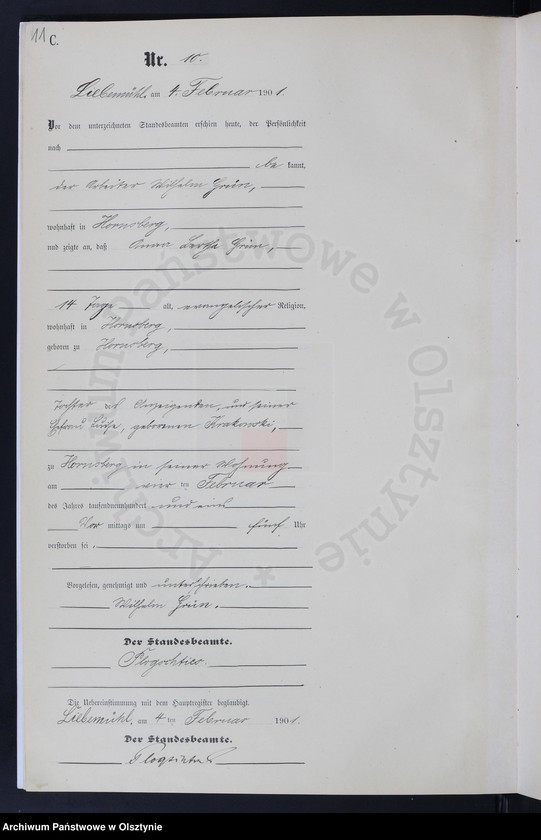 11
C.
Nr. 10.
Liebemühl, am 4. Februar 1901.
Vor dem unterzeichneten Standesbeamten erschien heute, der Persönlichkeit
nach
be kannt,
der Arbeiter Wilhelm Grün,
wohnhaft in Hornsberg,
und zeigte an, daß Anna Bertha Grün,
14 Tage alt, evangelischer Religion,
wohnhaft in Hornsberg,
geboren zu Hornsberg,
Tochter des Anzeigenden, und seiner
Ehefrau Luise, geborenen Krakowski,
zu Hornsberg in seiner Wohnung
am vier ten Februar
des Jahres tausendneunhundert und eins
Vor mittags um fünf Uhr
verstorben sei.
Vorgelesen, genehmigt und unterschrieben.
Wilhelm Grün.
Der Standesbeamte.
Die Uebereinstimmung mit dem Hauptregister beglaubigt.
Liebemühl, am 4 ten Februar 1901.
Der Standesbeamte.
Archiwum Państwowe w Olsztynie *
Archiwum Państwowe w Olsztynie